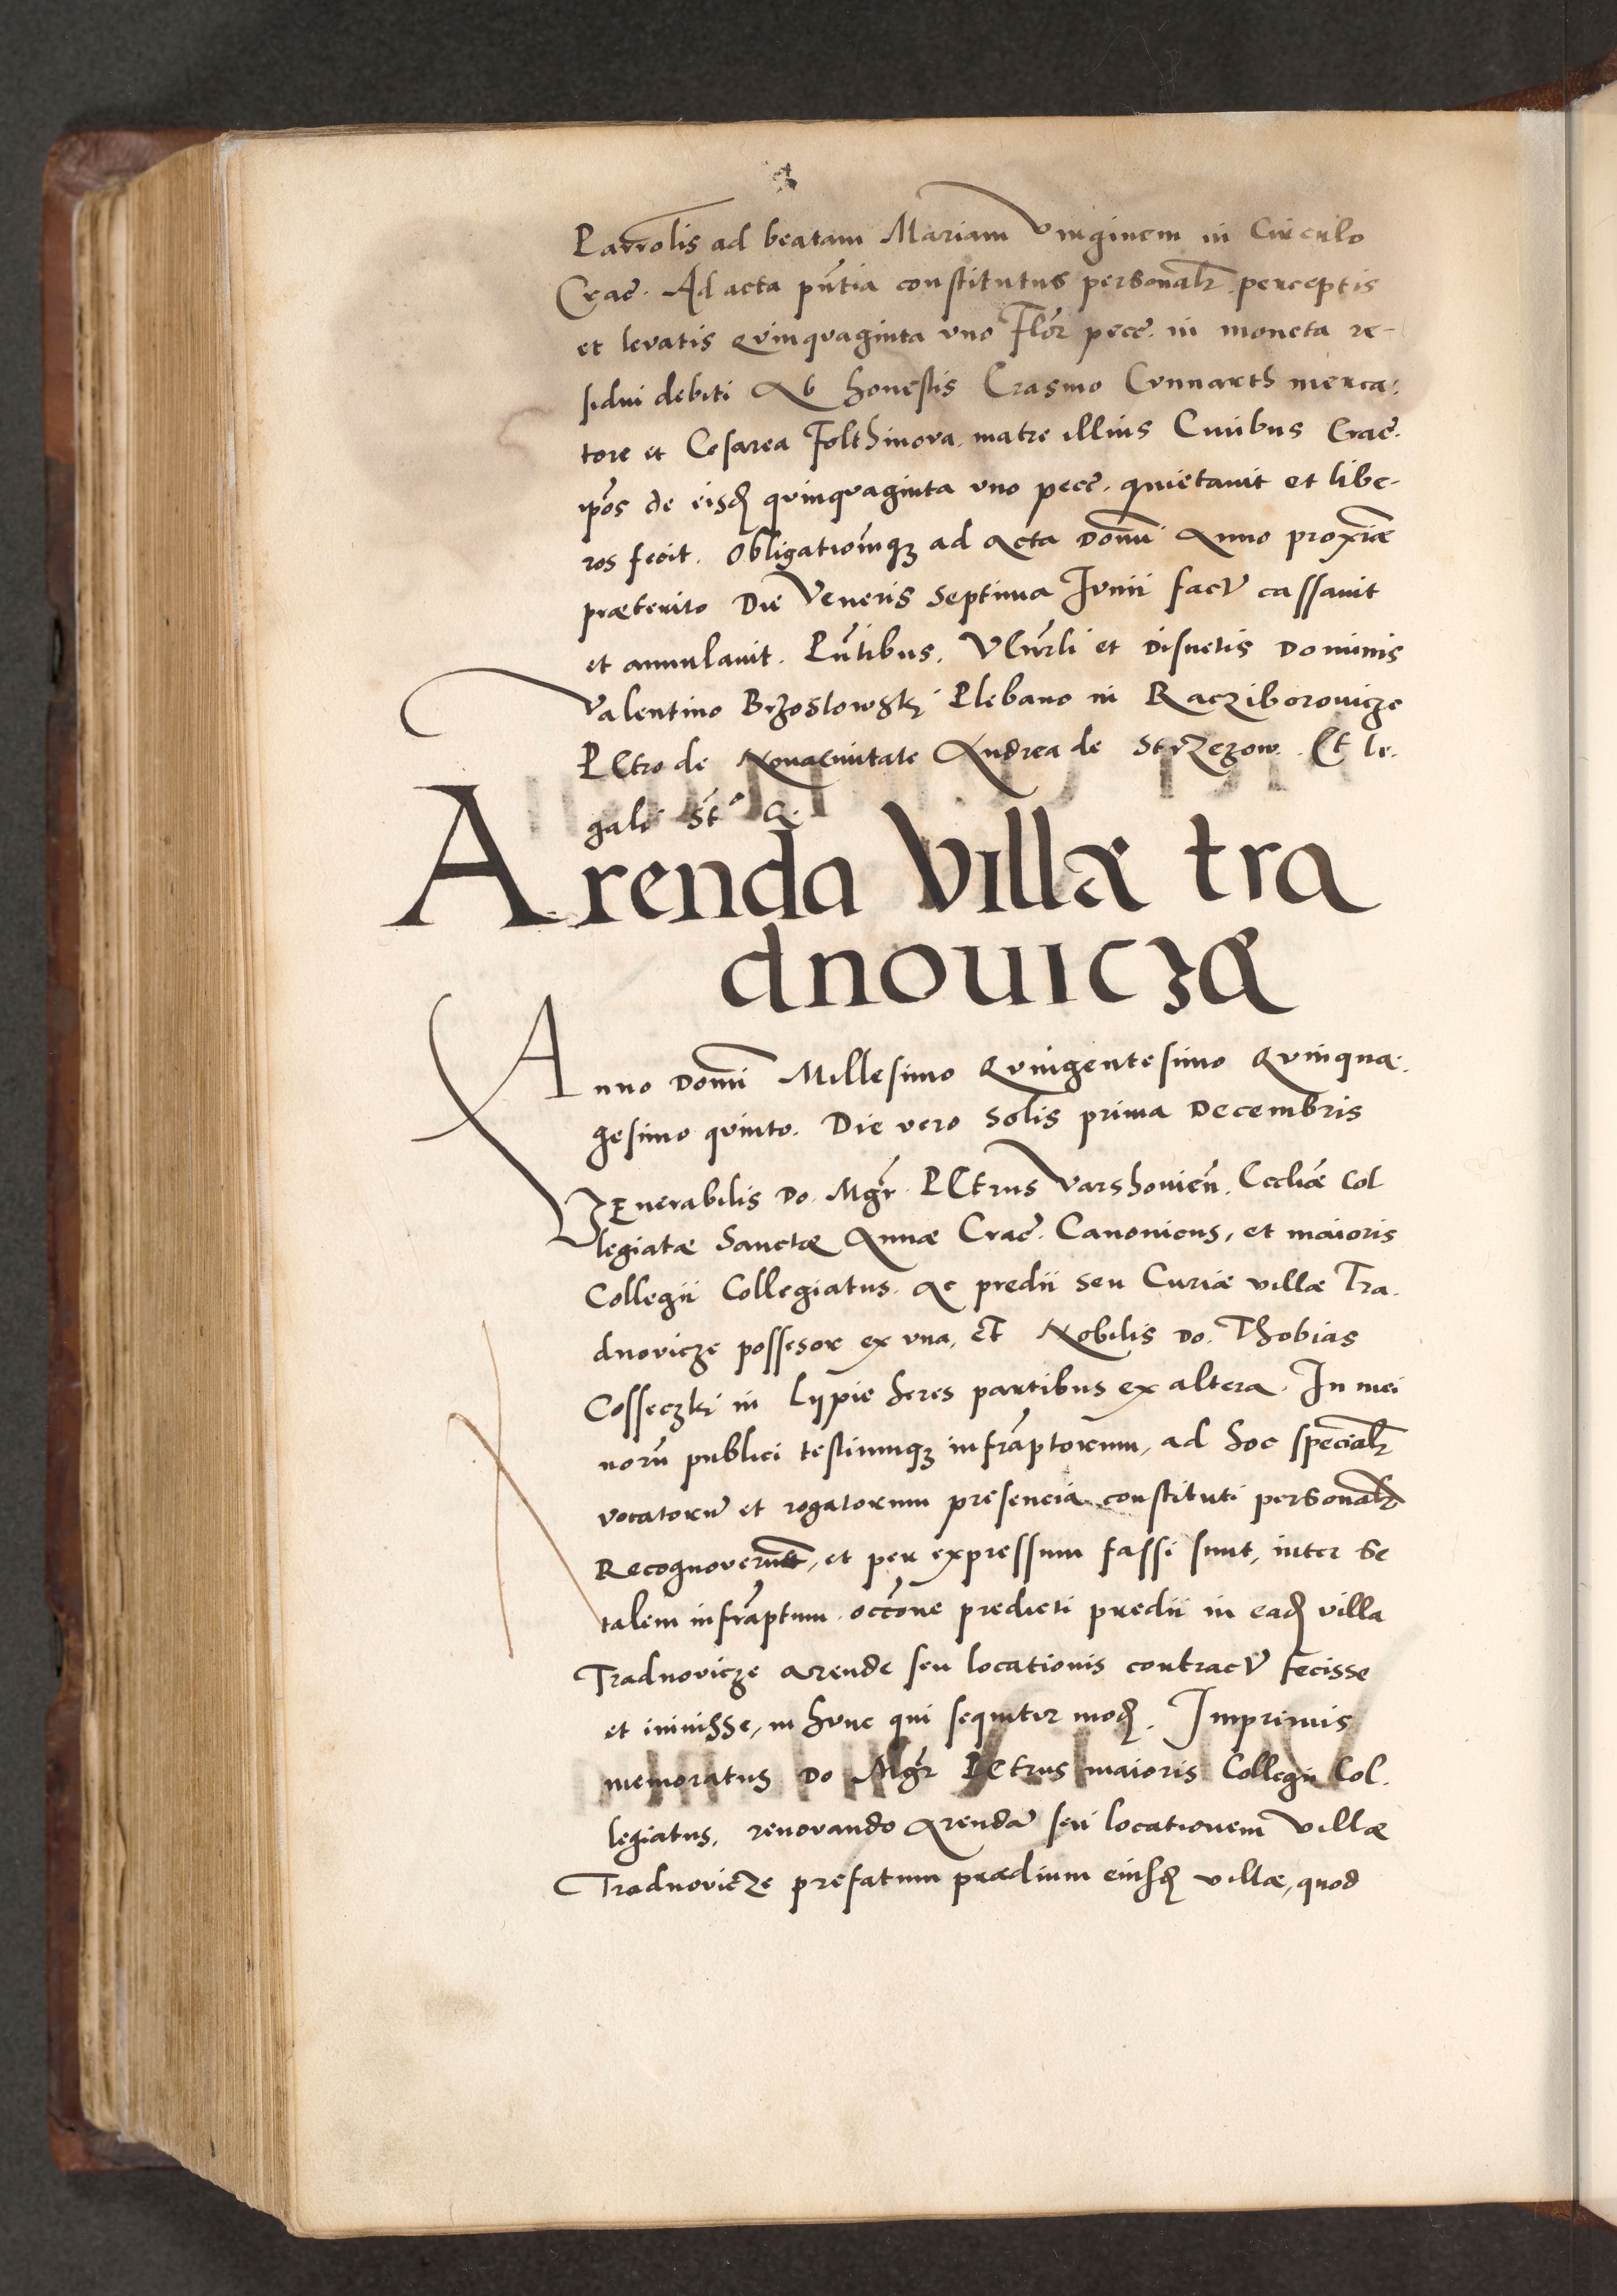 Parrolis ad beatam Mariam Virginem in Circulo
Crac̃. Ad acta pñtia constitutus personalr̃. perceptis
et levatis Qvinqvaginta vno Flor̃ pecc̃. in moneta re-
sidui debiti Ab honestis Erasmo Cunnarth merca:
tore et Cesarea Folthinova. matre illius Civibus Crac̃.
ip̃os de eisđ qvinqvaginta vno pecc̃. quietavit et libe-
ros fecit. Obligatiom̃qʒ ad Acta Domi Anno proxim̃e
præterito Die Veneris septima Ivnii factũ cassavit
et annulavit. Pñtibus. Vener̃li et Discretis Dominis
Valentino Brzostowsky Plebano in Racziborovicze
Petro de Novacivitate Andrea de Strzezow. Et le-
gale St̃o a.
Arenda Villæ tra
dnoviczæ
Anno Domĩ Millesimo Qvingentesimo Qvinqua.
gesimo qvinto. Die vero Solis prima Decembris
Venerabilis Do. Mgr̃. Petrus Varshovien̄. Eccliæ Col
legiatæ Sanctæ Annæ Crac̃. Canonicus, et maioris
Collegii Collegiatus. Ac predii seu Curiæ villæ Tra.
dnovicze possesor ex vna, Et Nobilis Do. Thobias
Cosseczki in Lypie heres partibus ex altera. In mei
norũ publici testiumqʒ infrãptorum, ad hoc specialr̃
vocatorũ et rogatorum presencia constituti personalr̃
Recognoverunt, et per expressum fassi sunt, inter se
talem infrãptum. occõne predicti predii in eađ villa
Tradnovicze arende seu locationis contractũ fecisse
et inivisse, in hvnc qui sequitur mođ. Imprimis
memoratus Do Mgr̃ Petrus maioris Collegii Col.
legiatus, renovando Arendã seu locationem Villæ
Tradnovicze prefatum prædium eiusđ villæ, quod